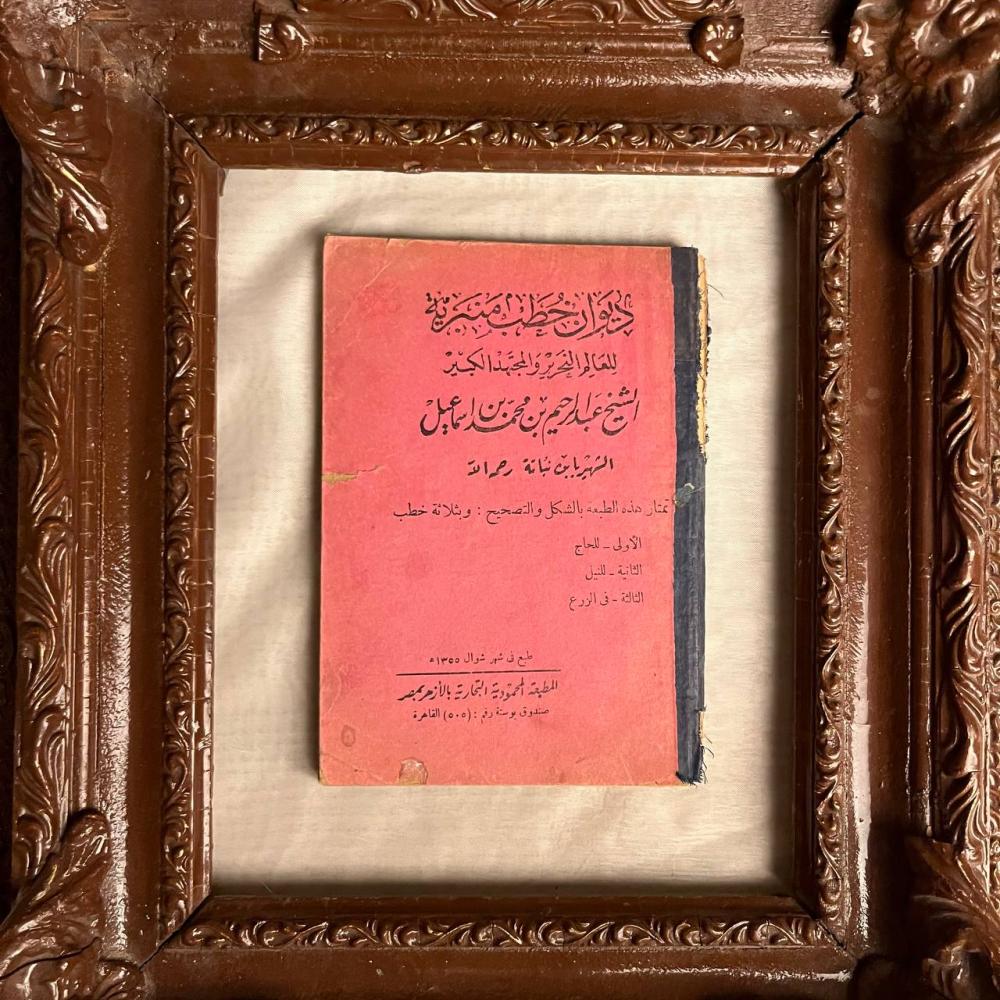 ديوان خُطَب مَنبَريّة
للعالم النحرير والمجتهد الكبير
الشيخ عبد الرحيم بن محمد بن إسماعيل
الشهير بابن نباتة رحمه الله
تمتاز هذه الطبعه بالشكل والتصحيح : وبثلاثة خطب
الأولى ـ للحاج
الثانية ـ للنيل
الثالثة ـ فى الزرع
طبع فى شهر شوال ١٣٥٥ه
المطبعة المحمودية التجارية بالأزهر بمصر
صندوق بوستة رقم : (٥٠٥) القاهرة